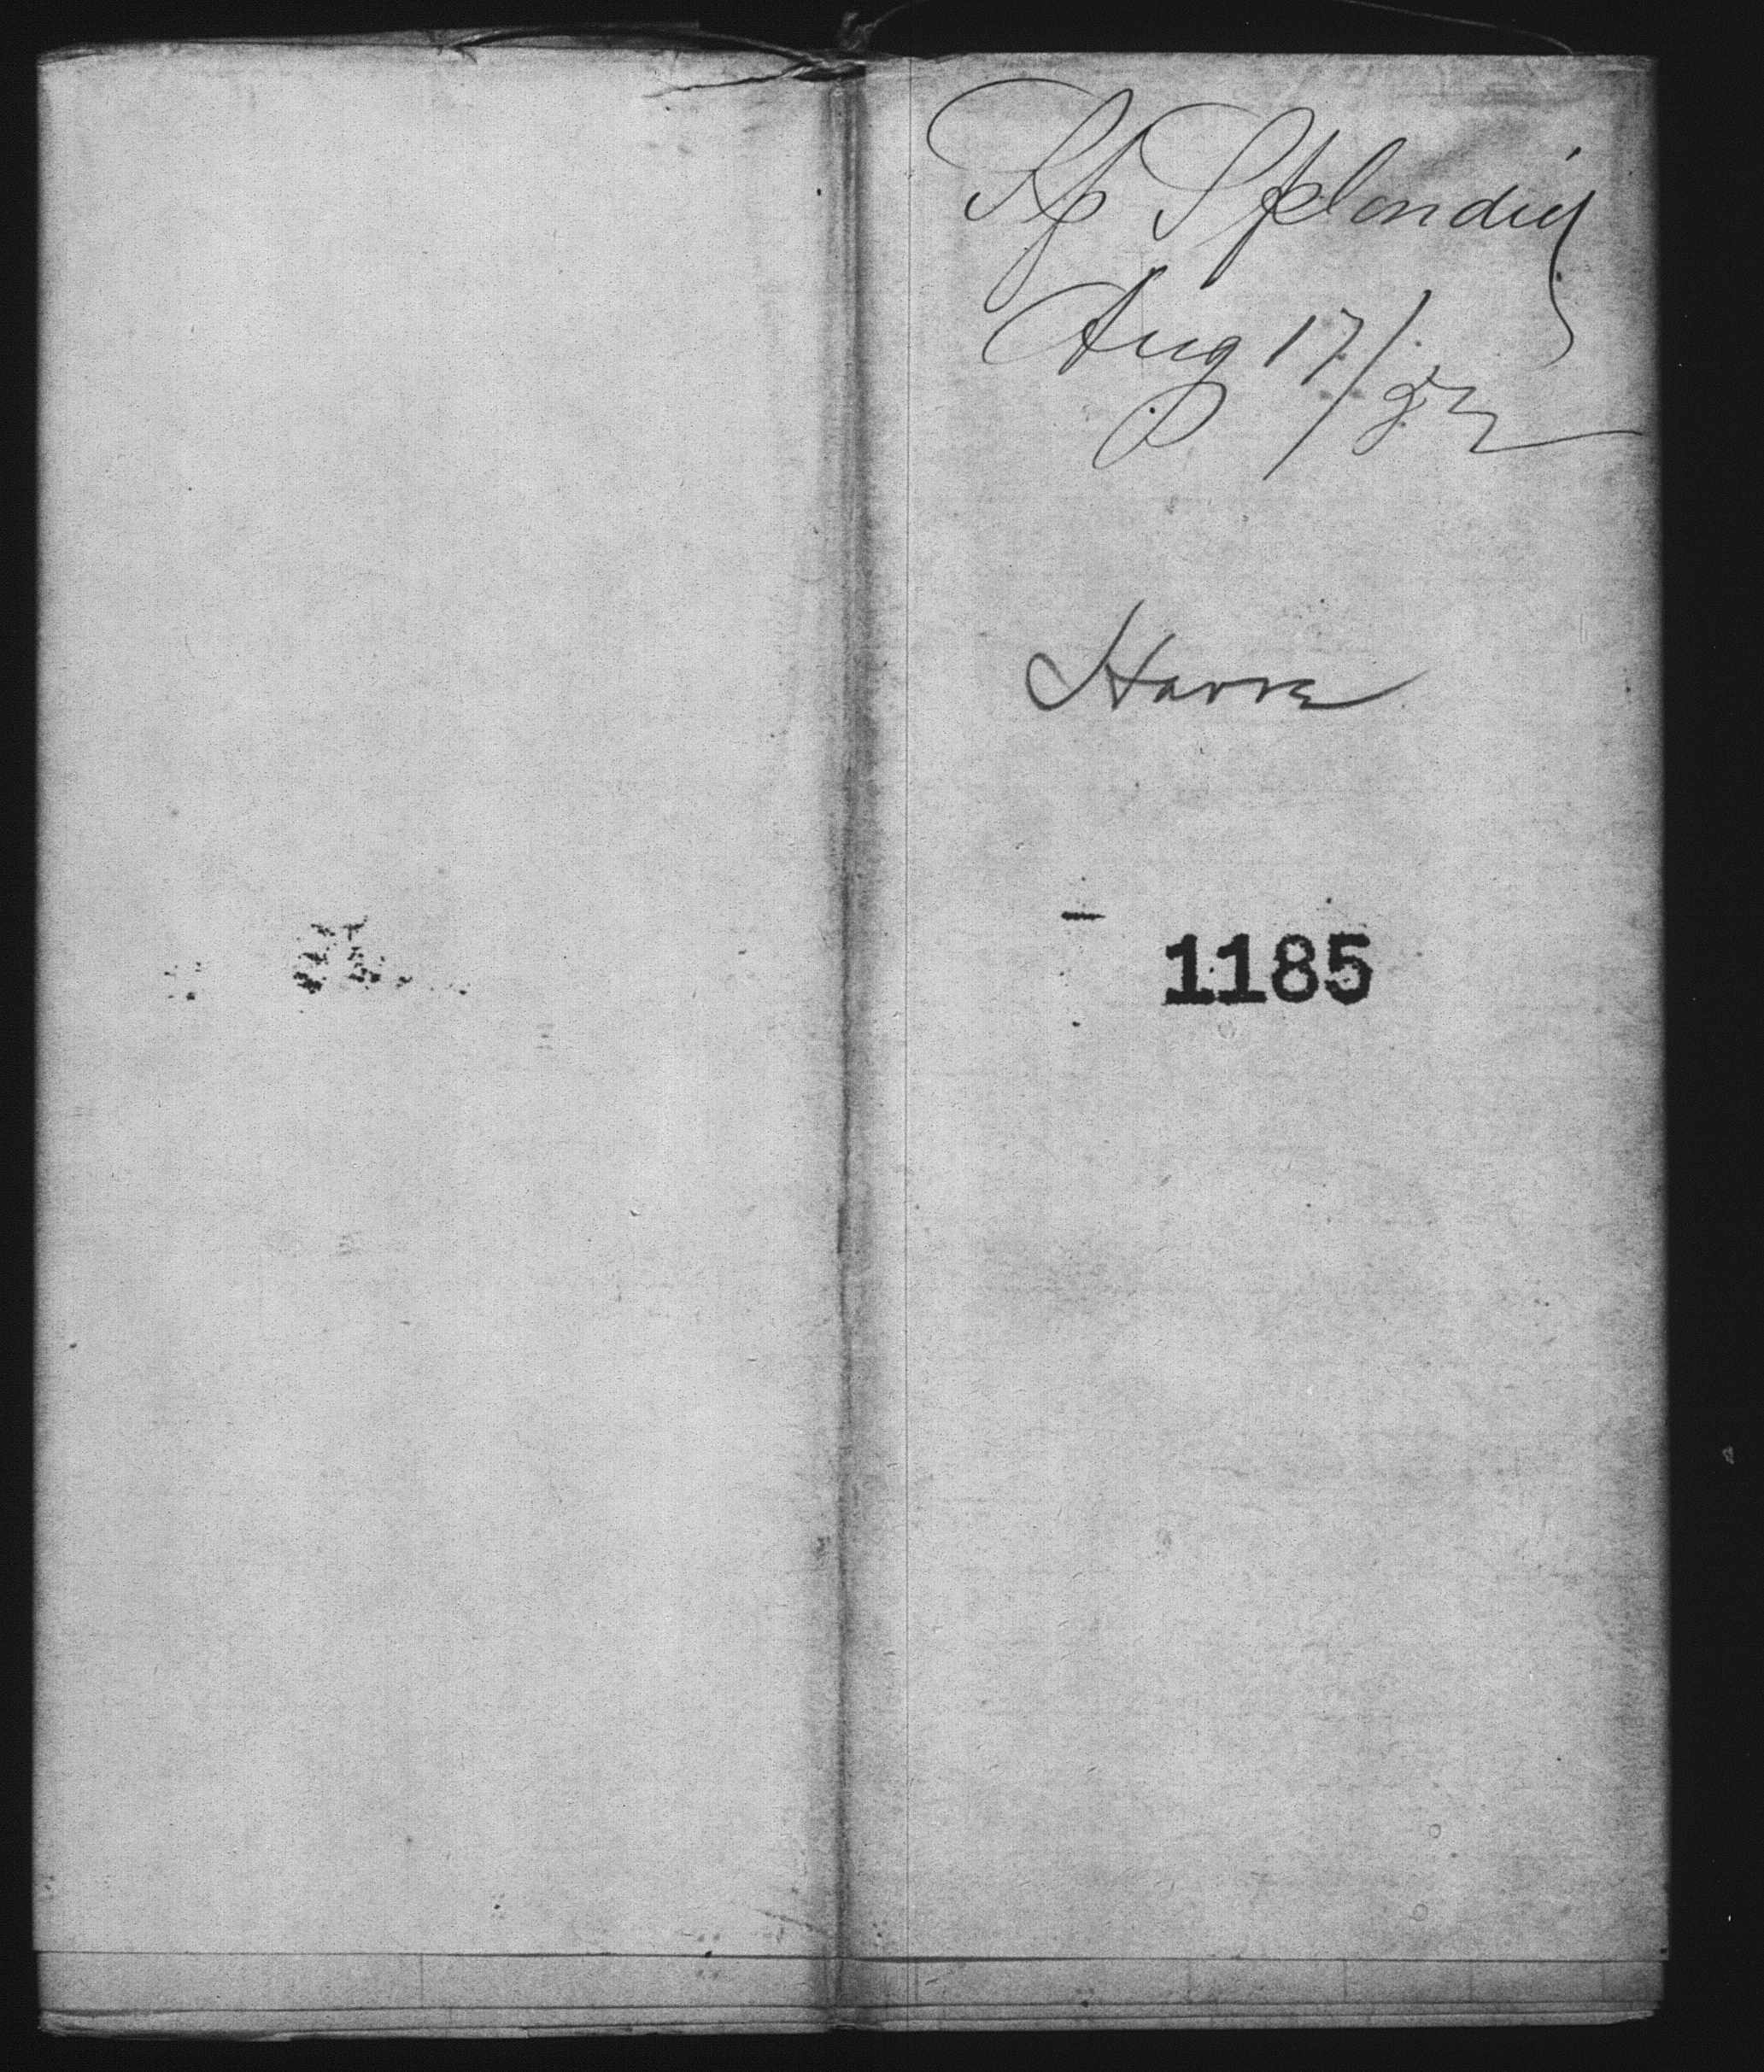 Sp Splendid
Aug 17/82
Havre
1185